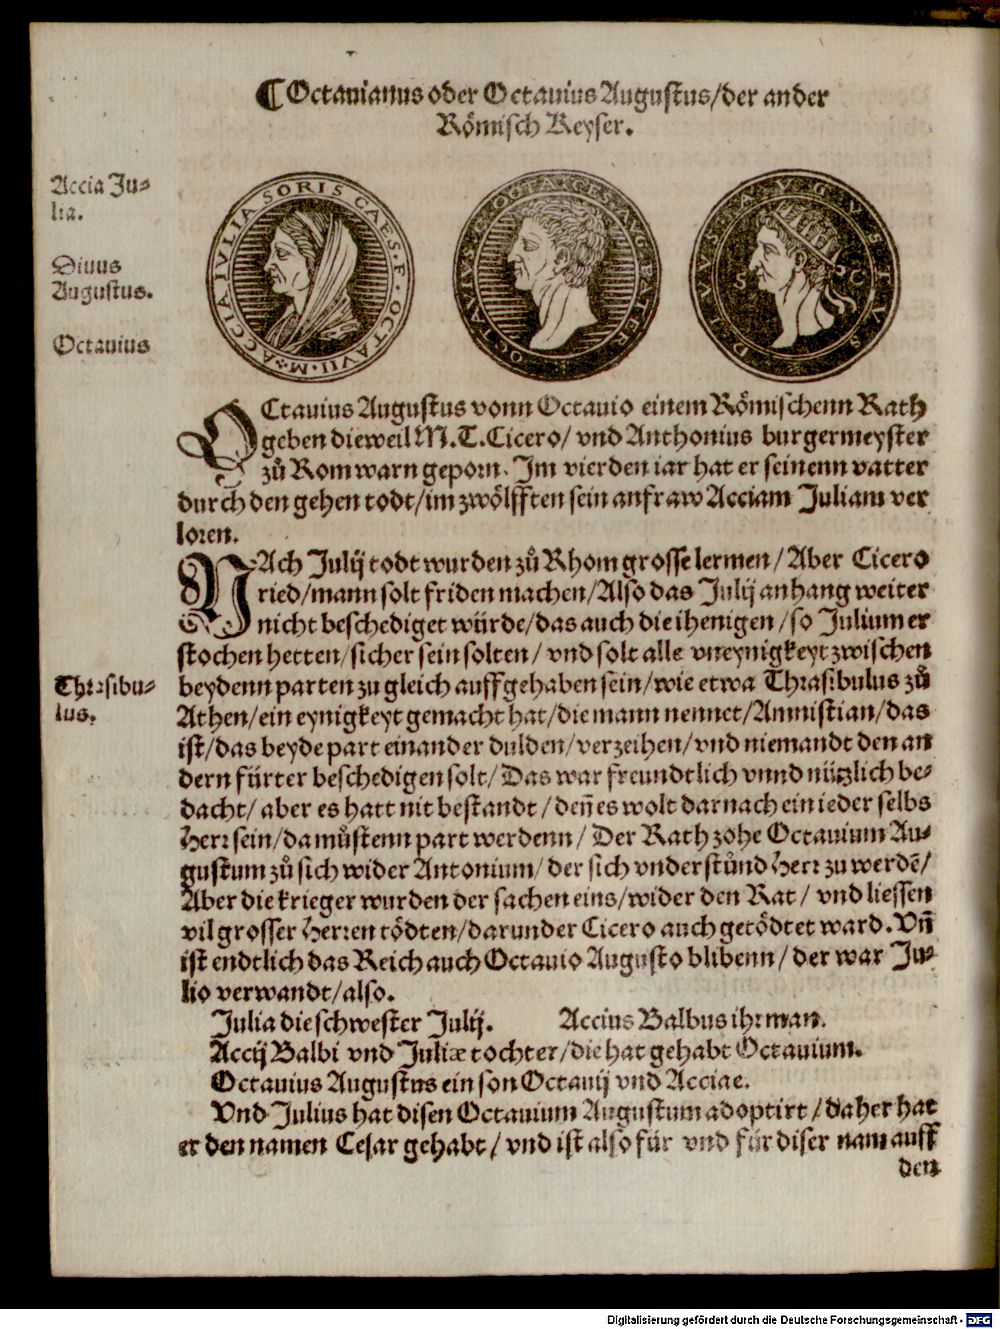 ¶ Octauianus oder Octauius Augustus/der ander
Römisch Keyser.
Accia Ju⸗
lia.
Diuus
Augustus.
Octauius
ACCIA IVLIA SORIS CAES. F. OCTAVII. M.
OCTAVIUS OCTA. CES. AVG. PATER
DIVVS AVGVSTVS
S C
OCtauius Augustus vonn Octauio einem Römischenn Rath
geben dieweil M.T.Cicero/ vnd Anthonius burgermeyster
zů Rom warn geporn. Im vierden iar hat er seinenn vatter
durch den gehen todt/im zwölfften sein anfraw Acciam Juliam ver
loren.
NAch Julij todt wurden zů Rhom grosse lermen/Aber Cicero
ried/mann solt friden machen/Also das Julij anhang weiter
nicht beschediget würde/das auch die ihenigen/so Julium er
stochen hetten/sicher sein solten/ vnd solt alle vneynigkeyt zwischen
beydenn parten zu gleich auffgehaben sein/wie etwa Thrasibulus zů
Athen/ein eynigkeyt gemacht hat/die mann nennet/Amnistian/das
ist/das beyde part einander dulden/verzeihen/vnd niemandt den an
dern fürter beschedigen solt/Das war freundtlich vnnd nützlich be⸗
dacht/ aber es hatt nit bestandt/deñ es wolt darnach ein ieder selbs
Herr sein/da můstenn part werdenn/Der Rath zohe Octauium Au⸗
gustum zů sich wider Antonium/der sich vnderstůnd Herr zu werdẽ/
Aber die krieger wurden der sachen eins/wider den Rat/ vnd liessen
vil grosser Herren tödten/darunder Cicero auch getödtet ward. Vñ
ist endtlich das Reich auch Octauio Augusto blibenn/der war Ju⸗
lio verwandt/also.
Thrasibu⸗
lus.
Julia die schwester Julij. Accius Balbus ihr man.
Accij Balbi vnd Juliæ tochter/die hat gehabt Octauium.
Octauius Augustus ein son Octauij vnd Acciae.
Vnd Julius hat disen Octauium Augustum adoptirt/daher hat
er den namen Cesar gehabt/ vnd ist also für vnd für diser nam auff
den
Digitalisierung gefördert durch die Deutsche Forschungsgemeinschaft - DFG